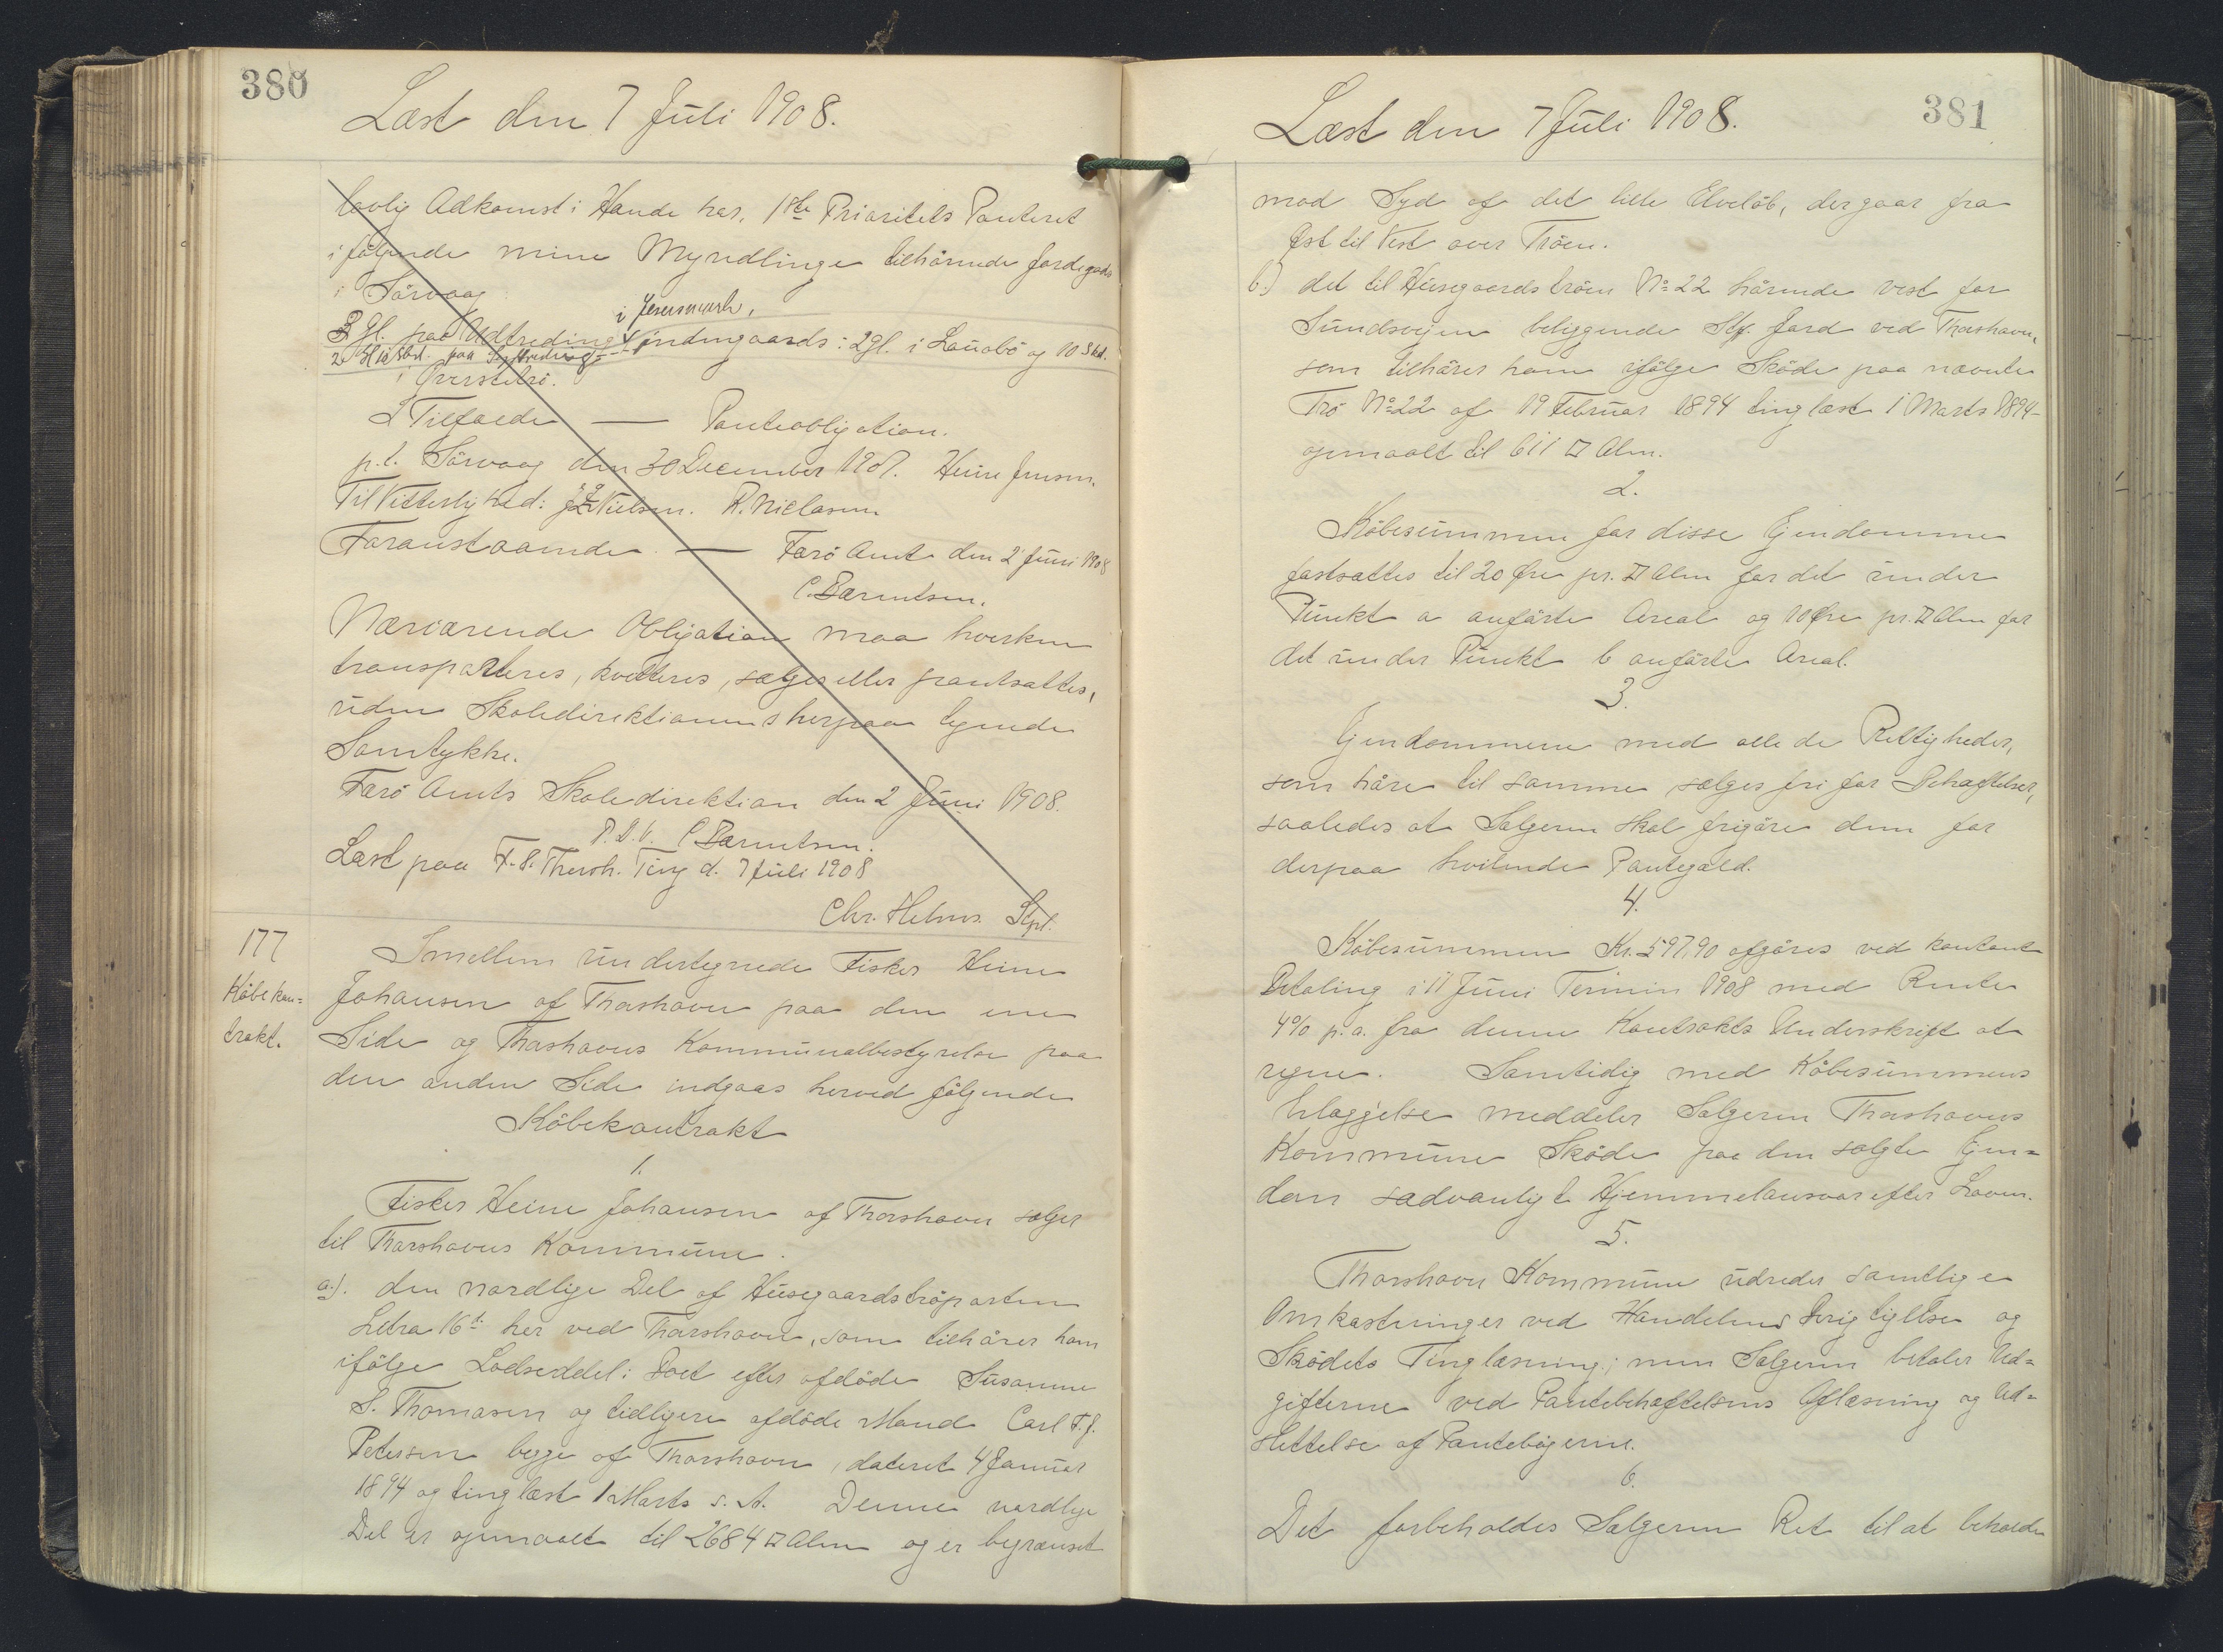 380
Læst den 7 Juli 1908.
lovlig Adkomst i Hænde har, 1ste Prioritets Panteret
i følgende mine Myndlinge tilhørende Jordegods
i Sörvaag
i Jensmark,
3 Gl. paa Udtreding indengaards: 2 gl. i Lauabø og 10 Skd.
i Øverstetrö.
I Tilfælde — Panteobligation.
p.t. Sörvaag den 30 December 1907. Heine Jensen.
Til Vitterlighed: Nielsen. R. Niclasen
Foranstaaende — Færö Amt den 2 Juni 1908
C. Bærentsen.
Nærværende Obligation maa hverken
transporteres, kvitteres, sælges eller pantsættes,
uden Skoledirektionens herpaa tegnede
Samtykke.
Færö Amts Skoledirektion den 2 Juni 1908.
P. D. V. C. Bærentsen.
Læst paa F. S. Thorsh. Ting d. 7 Juli 1908
Chr. Helms. Kpt.
177
Köbekon=
trakt.
Imellem undertegnede Fisker Heine
Johansen af Thorshavn paa den ene
Side og Thorshavns Kommunalbestyrelse paa
den anden Side indgaas herved fölgende
Köbekontrakt
1.
Fisker Heine Johansen af Thorshavn sælger
til Thorshavns Kommune.
a). den nordlige Del af Husegaardströparten
Litra 16t her ved Thorshavn, som tilhörer ham
ifölge Lodseddel i Boet efter afdöde Susanne
S. Thomasen og tidligere afdöde Mand Carl F. J.
Petersen begge af Thorshavn, dateret 4 Januar
1894 og tinglæst 1 Marts s. A. Denne nordlige
Del er opmaalt til 2684 □ Alen og er begrænset
381
Læst den 7 Juli 1908.
mod Syd af det lille Elvelöb, der gaar fra
Øst til Vest over Tröen.
b.) det til Husegaardströen No 22 hörende vest for
Sundsvejen beliggende Stk. Jord ved Thorshavn,
som tilhörer ham ifölge Sköde paa nævnte
Trö No 22 af 19 Februar 1894 tinglæst 1 Marts 1894 –
opmaalt til 611 □ Alen.
2.
Köbesummen for disse Ejendomme
fastsættes til 20 Øre pr. □ Alen for det under
Punkt a anförte Areal og 10 Øre pr. □ Alen for
det under Punkt b anförte Areal.
3.
Ejendommene med alle de Rettigheder,
som höre til samme sælges fri for Behæftelser,
saaledes at Sælgeren skal frigöre dem for
derpaa hvilende Pantegæld.
4.
Köbesummen Kr. 597,90 afgöres ved kontant
Betaling i 11 Juni Termin 1908 med Rente
4% p. a. fra denne Kontrakts Underskrift at
regne. Samtidig med Köbesummens
Erlæggelse meddeler Sælgeren Thorshavns
Kommune Sköde paa den solgte Ejen=
dom sædvanligt Hjemmelansvar efter Loven.
5.
Thorshavn Kommune udreder samtlige
Omkostninger ved Handelens Berigtigelse og
Sködets Tinglæsning; men Sælgeren betaler Ud=
gifterne ved Pantebehæftelsens Aflæsning og Ud=
slettelse af Pantebögerne.
6.
Det forbeholdes Sælgeren Ret til at beholde